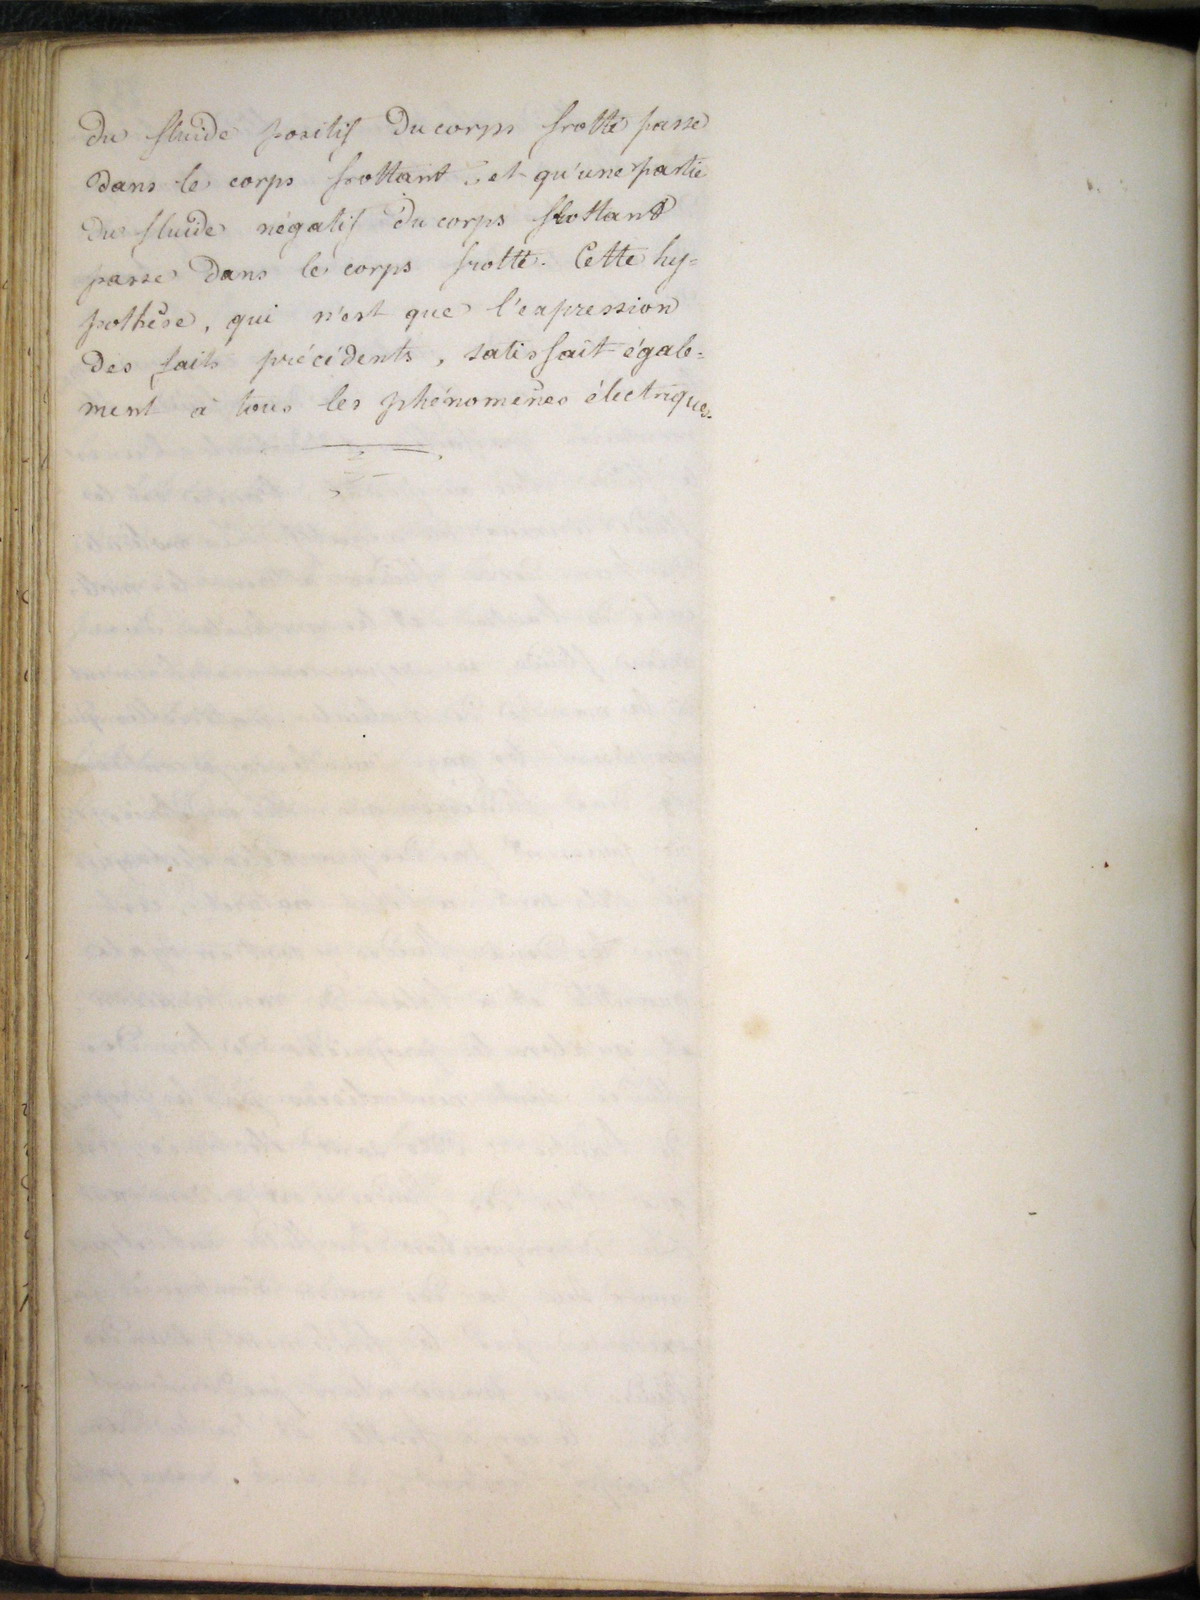 du fluide positif du corps frotté passe
dans le corps frottant, et qu'une partie
du fluide négatif du corps frottant
passe dans le corps frotté. Cette hy=
pothèse, qui n'est que l'expression
des faits précédents, satisfait égale=
ment à tous les phénomènes électriques.